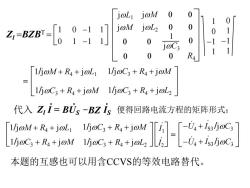 Z_l=BZB^T= [1 0 -1 1; 0 1 -1 1] [jωL₁ jωM 0 0; jωM jωL₂ 0 0; 0 0 1/(jωC₃) 0; 0 0 0 R₄] [1 0; 0 1; -1 -1; 1 1]
= [1/jωM + R₄ + jωL₁ 1/jωC₃ + R₄ + jωM; 1/jωC₃ + R₄ + jωM 1/jωC₃ + R₄ + jωL₂]
代入 Z_l İ = BU̇_S -BZ İ_S 便得回路电流方程的矩阵形式:
[1/jωM + R₄ + jωL₁ 1/jωC₃ + R₄ + jωM; 1/jωC₃ + R₄ + jωM 1/jωC₃ + R₄ + jωL₂] [İ₁; İ₂] = [-U̇₄ + İ_S3/jωC₃; -U̇₄ + İ_S3/jωC₃]
本题的互感也可以用含CCVS的等效电路替代。